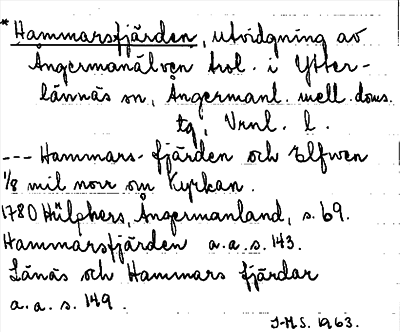 *Hammarsfjärden, utvidgning av
Ångermanälven trol. i Ytter-
lännäs sn, Ångermanl. mell. doms.
tg, Vrnl. l.
--- Hammars- fjärden och Elfwen
1/8 mil norr om Kyrkan.
1780 Hülphers, Ångermanland, s. 69.
Hammarsfjärden a.a.s. 143.
Länäs och Hammars fjärdar
a.a.s. 149.
J-M.S. 1963.